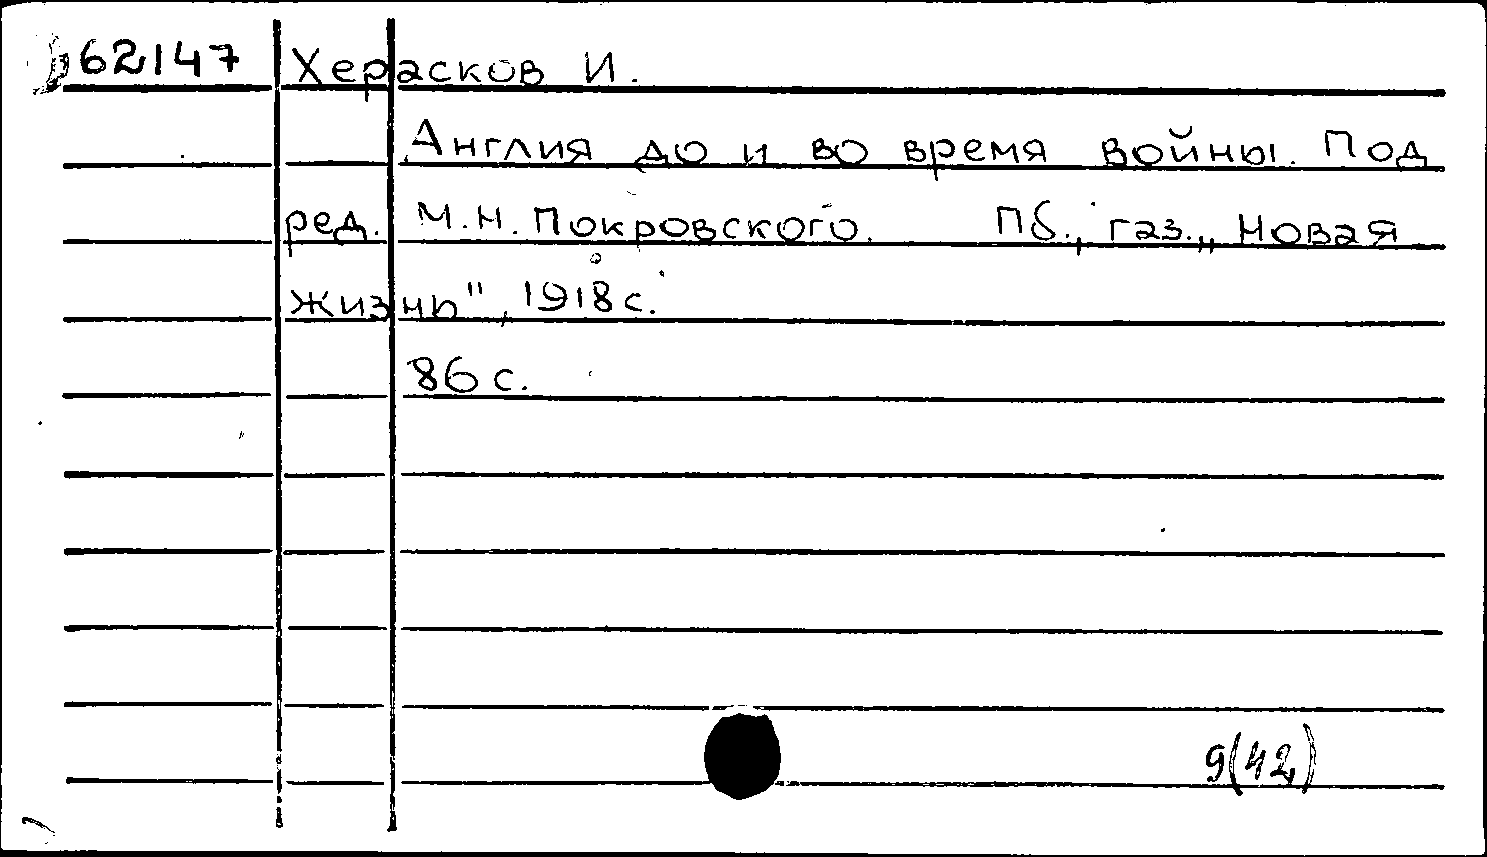 62147 Херасков И.
Англия до и во время войны. Под
ред. М.Н. Покровского. Пб., газ. „Новая
жизнь", 1918 с.
86 с.
9(42)